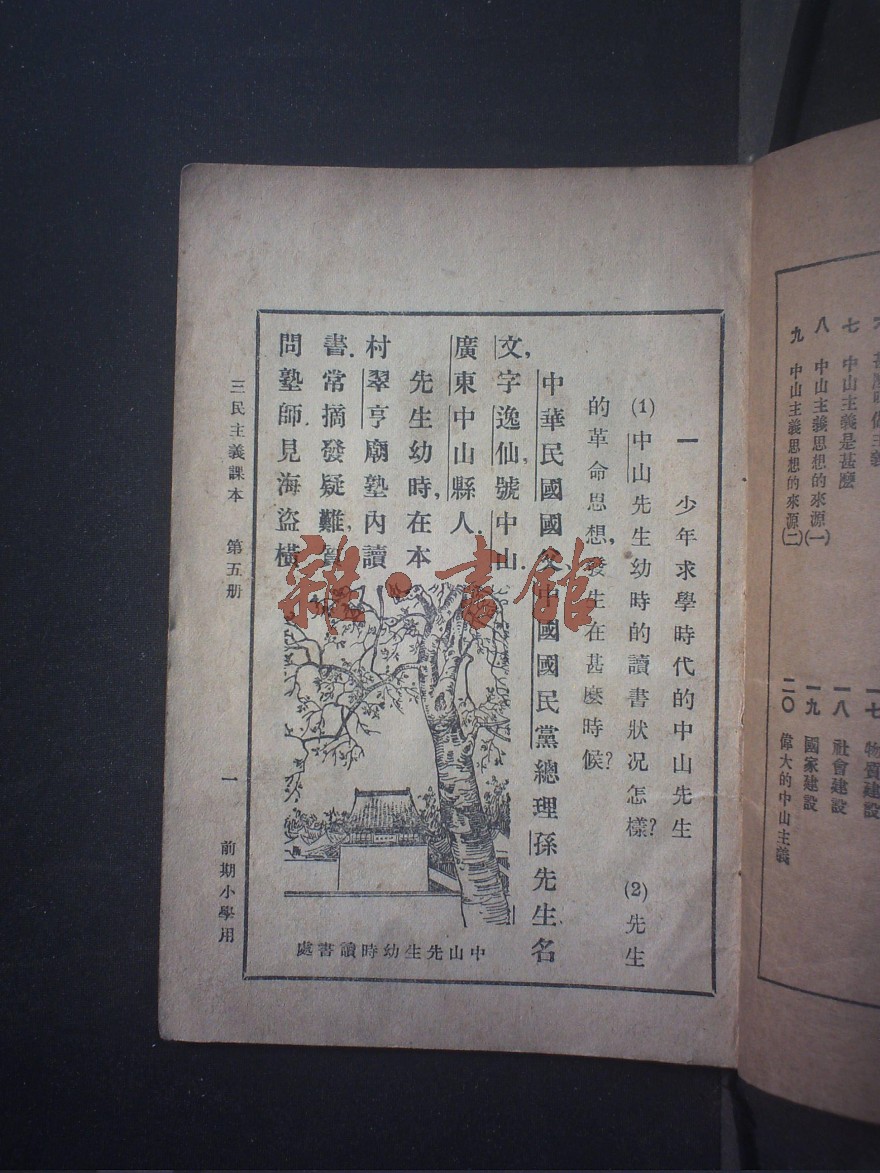 一　少年求學時代的中山先生
(1)中山先生幼時的讀書狀况怎樣？　(2)先生
的革命思想，發生在甚麼時候？
中華民國國父、中國國民黨總理孫先生名
文，字逸仙，號中山．
廣東中山縣人．
先生幼時，在本
村翠亨廟塾內讀
書．常摘發疑難，質
問塾師．見海盜橫
中山先生幼時讀書處
三民主義課本　第五册　一　前期小學用
雜·書館
七　中山主義是甚麼
八　中山主義思想的來源(一)
九　中山主義思想的來源(二)
一七　物質建設
一八　社會建設
一九　國家建設
二〇　偉大的中山主義